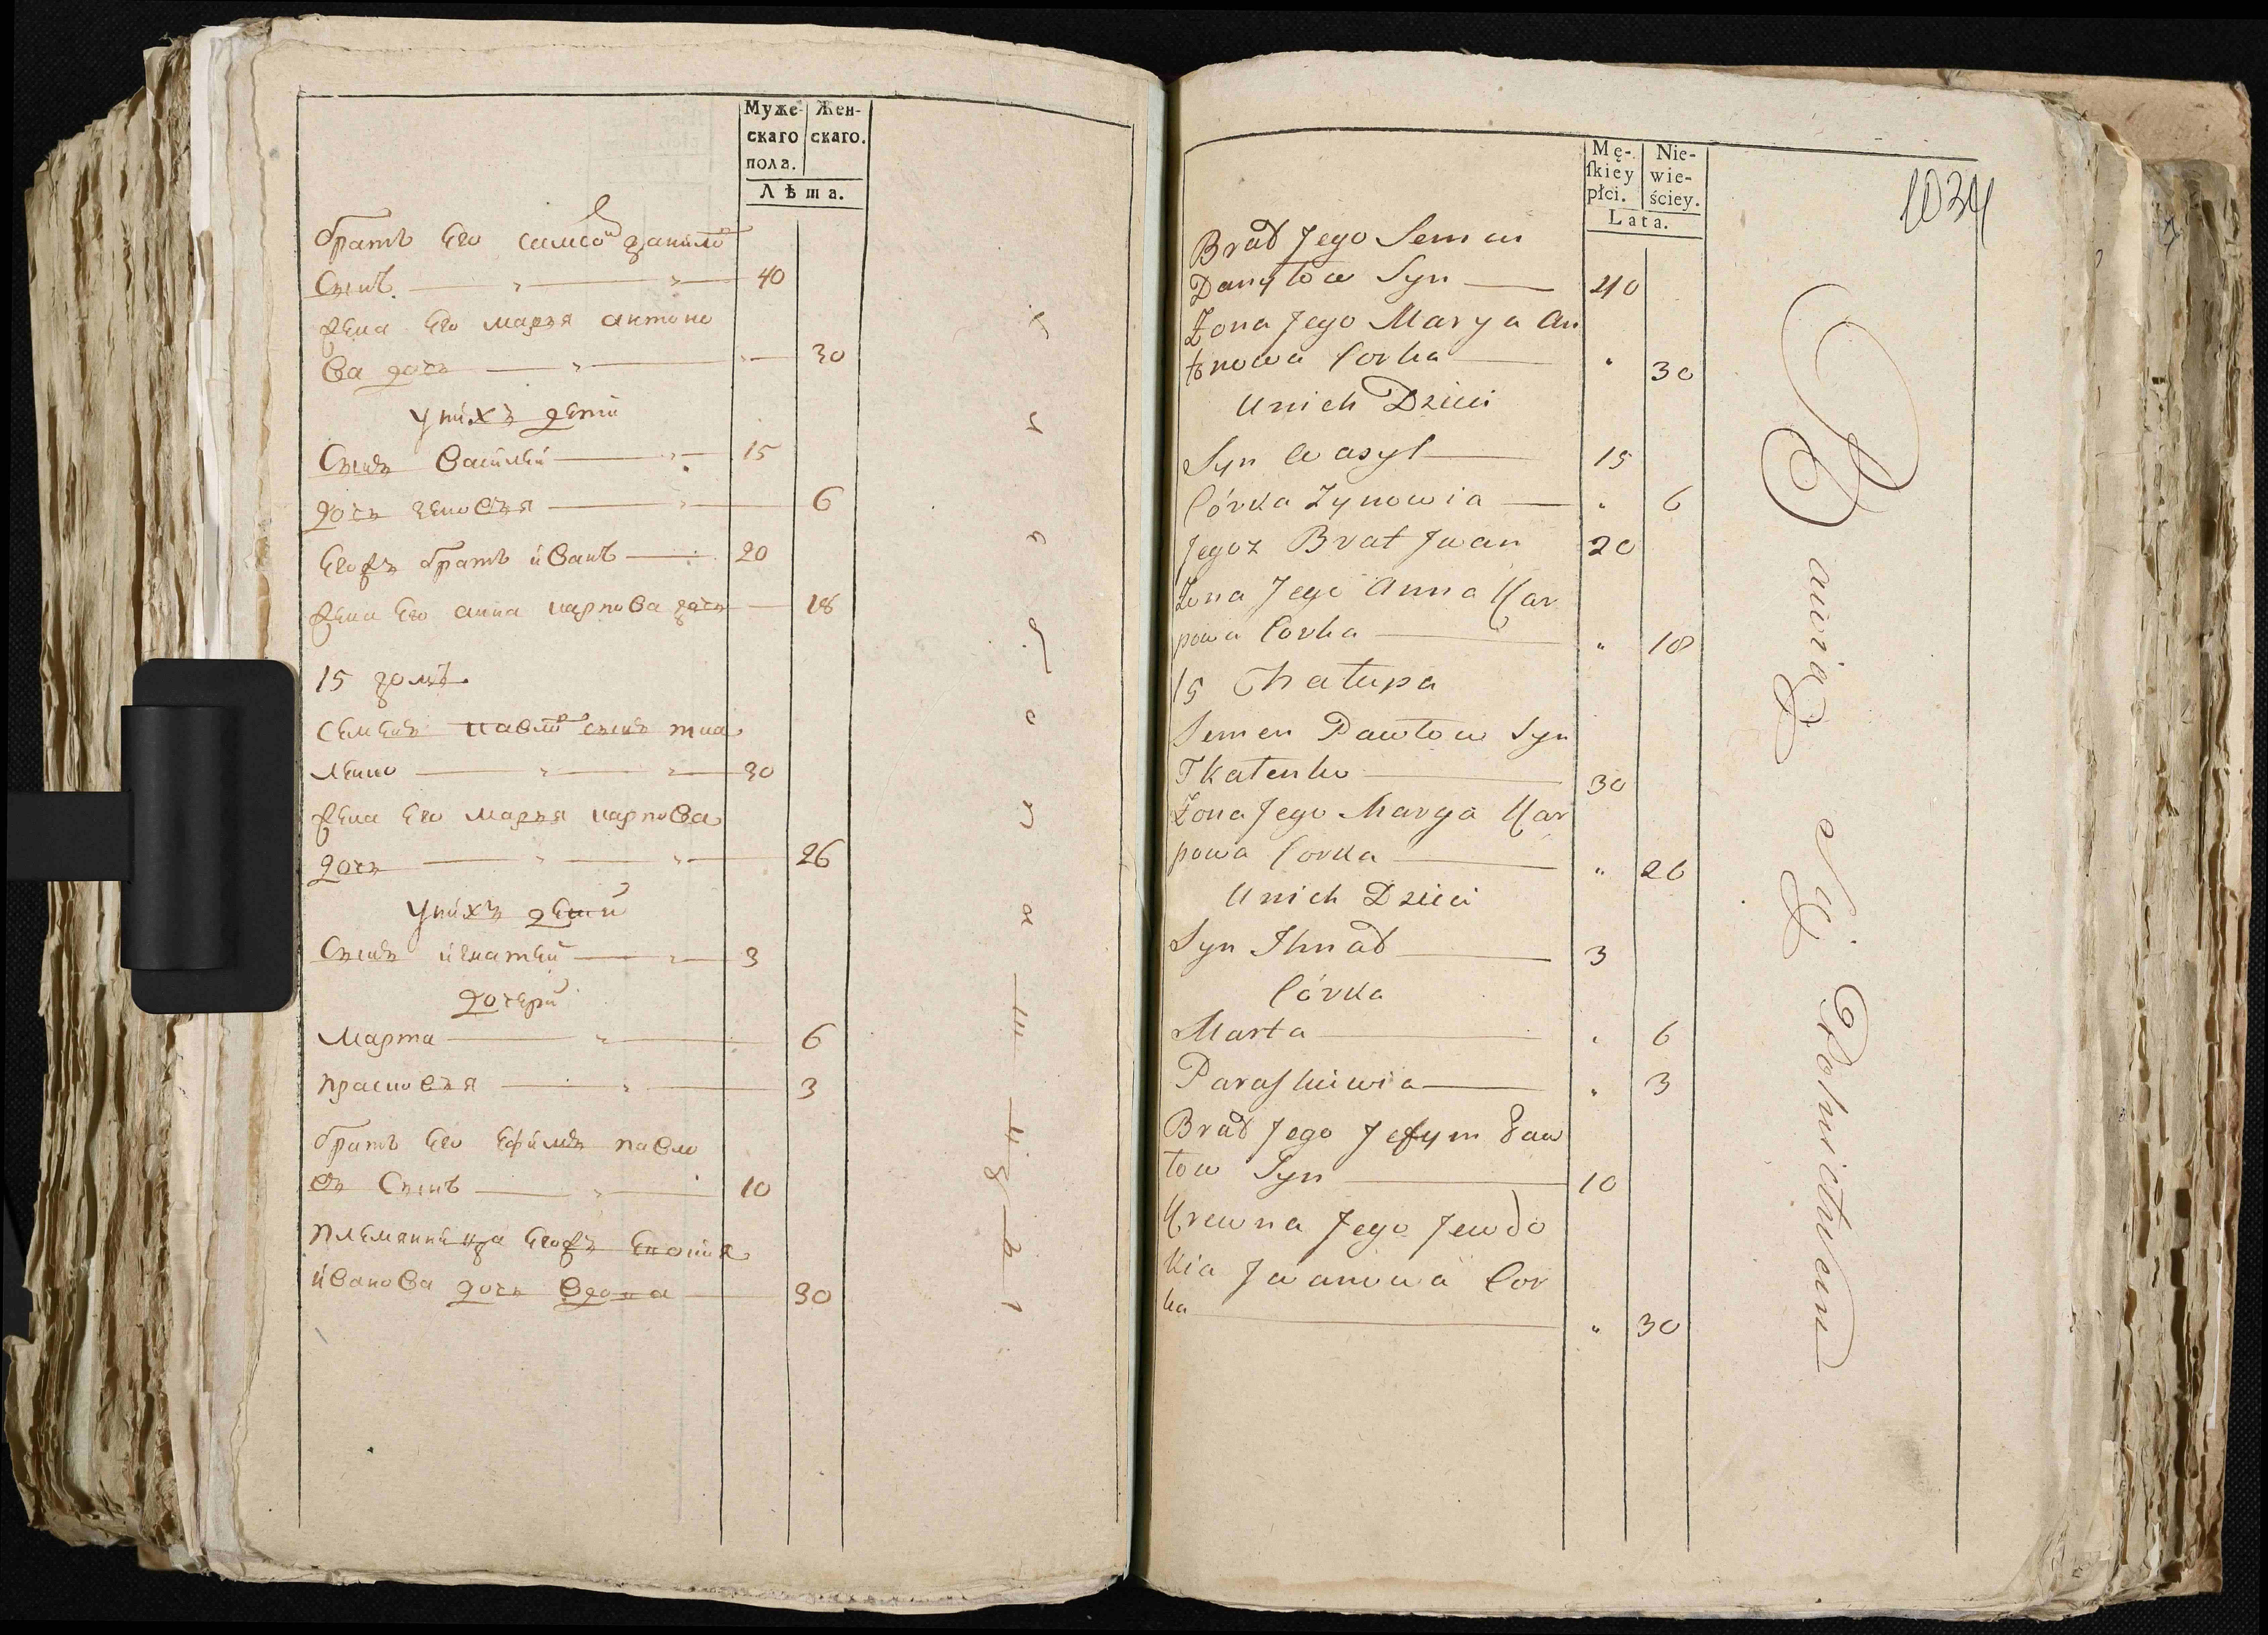 Муже-
скаго
пола.
Жен-
скаго.
Лѣта.
братъ Его симео данило
Сынъ 40
жена Его марья антоно
ва дочь 30
у нихъ дети
Сынъ Василей 15
дочь зеновья 6
Егожъ братъ иванъ 20
жена Его анна карпова дочь 18
15 домъ
Семенъ павло сынъ тка
ленко 30
жена Его марья карпова
дочь 26
у нихъ дети
Сынъ игнатей 3
дочери
Марта 6
прасковья 3
братъ Его Ефимъ павло
въ Сынъ 10
племянница Егожъ
иванова дочь вдова 30
Mę-
ſkiey
płci.
Nie-
wie-
ściey.
Lata.
1034
Brat Jego Semen
Danyłow Syn 40
Żona Jego Marya An
tonowa Corka " 30
U nich Dzieci
Syn Wasyl 15
Córka Zynowia " 6
Jegoz Brat Jwan 20
Żona Jego Anna Kar
powa Corka " 18
15 Chałupa
Semen Pawłow Syn
Tkatenko 30
Żona Jego Marya Kar
powa Corka " 26
U nich Dzieci
Syn Ihnat 3
Córka
Marta " 6
Paraskiwia " 3
Brat Jego Jefym Paw
łow Syn 10
Krewna Jego Jewdo
kia Jwanowa Cor
ka " 30
Bawią się Rolnictwem